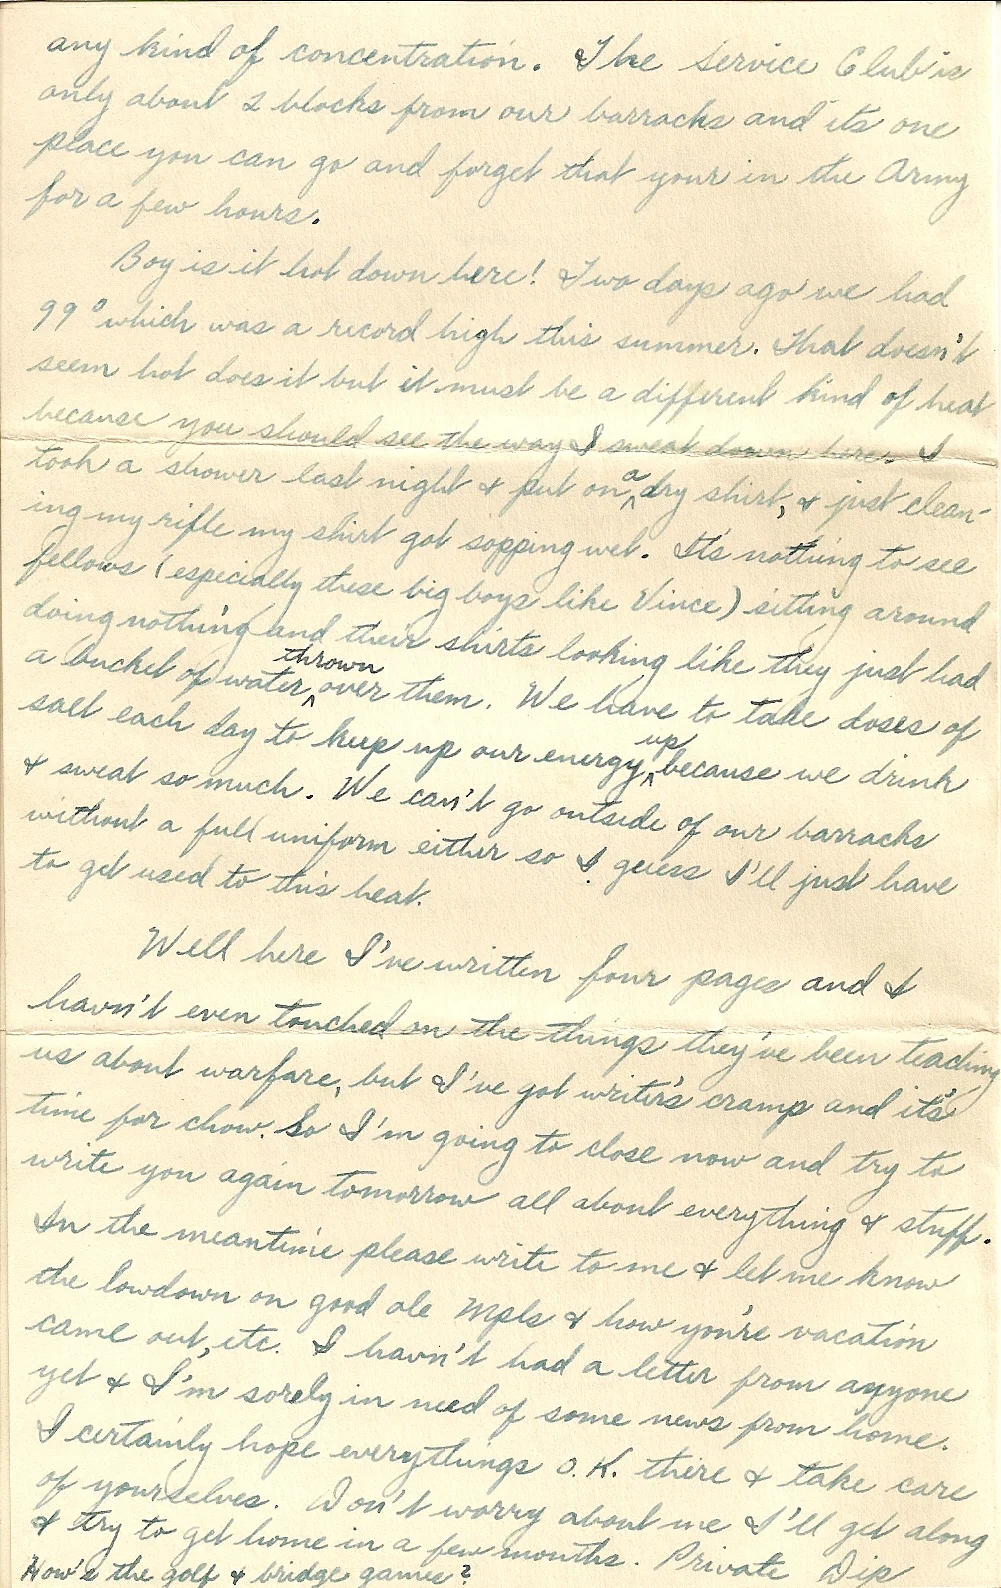 any kind of concentration. The Service Club is
only about 2 blocks from our barracks and its one
place you can go and forget that your in the Army
for a few hours.
Boy is it hot down here! Two days ago we had
99° which was a record high this summer. That doesn't
seem hot does it but it must be a different kind of heat
because you should see the way I sweat down here. I
took a shower last night & put on a dry shirt, & just clean-
ing my rifle my shirt got sopping wet. Its nothing to see
fellows (especially these big boys like Vince) sitting around
doing nothing and their shirts looking like they just had
a bucket of water thrown over them. We have to take doses of
salt each day to keep up our energy up because we drink
& sweat so much. We can't go outside of our barracks
without a full uniform either so I guess I'll just have
to get used to this heat.
Well here I've written four pages and I
havn't even touched on the things they've been teaching
us about warfare, but I've got writer's cramp and it's
time for chow. So I'm going to close now and try to
write you again tomorrow all about everything & stuff.
In the meantime please write to me & let me know
the lowdown on good ole Mpls & how you're vacation
came out, etc. I havn't had a letter from anyone
yet & I'm sorely in need of some news from home.
I certainly hope everythings O.K. there & take care
of yourselves. Don't worry about me I'll get along
& try to get home in a few months. Private Dip
How's the golf & bridge games?